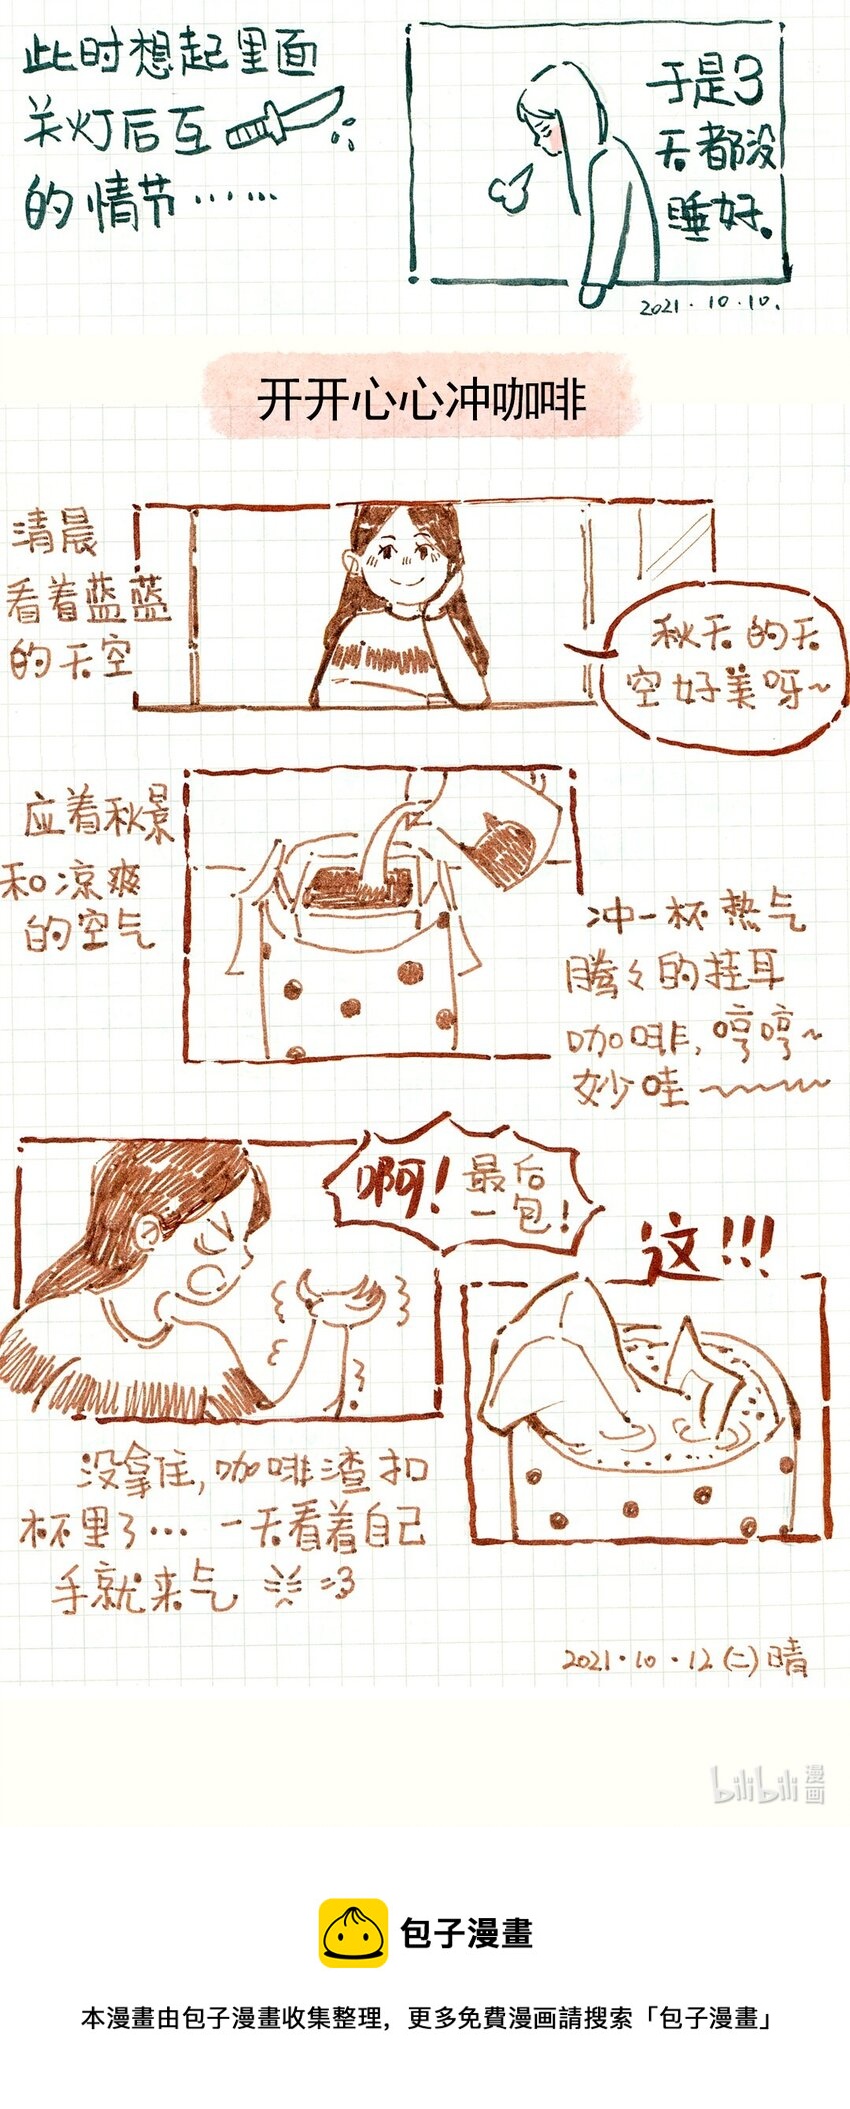 此时想起里面
关灯后互
的情节……
于是3
天都没
睡好。
2021.10.10.
开开心心冲咖啡
清晨
看着蓝蓝
的天空
秋天的天
空好美呀~
应着秋景
和凉爽
的空气
冲一杯热气
腾々的挂耳
咖啡,哼哼~
妙哇~~~~
啊!最后
一包!
这!!!
没拿住,咖啡渣扣
杯里了… 一天看着自己
手就来气
2021.10.12(二)晴
bilibili 漫画
包子漫畫
本漫畫由包子漫畫收集整理,更多免費漫画請搜索「包子漫畫」